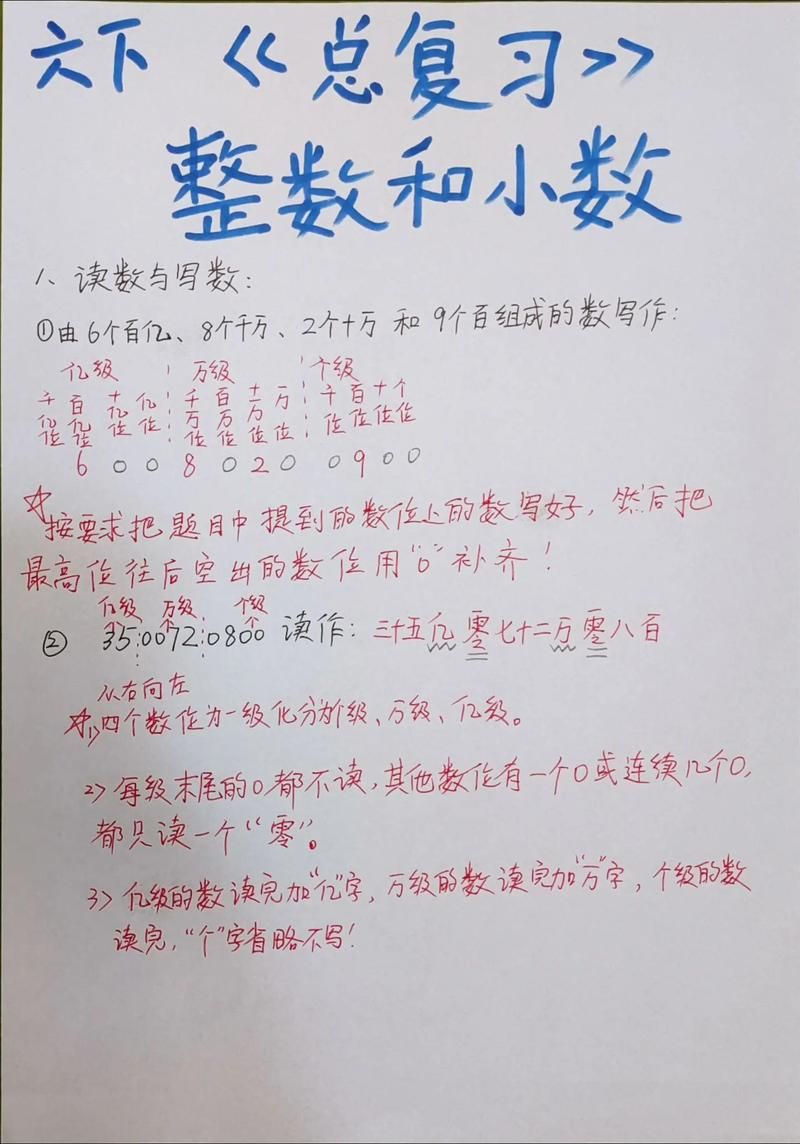 六下《总复习》
整数和小数
1、读数与写数：
①由6个百亿、8个千万、2个十万和9个百组成的数写作：
亿级 万级 个级
千百十亿千百十万千百十个
亿亿亿位万万万位位位位位
位位位位位位
6 0 0 8 0 2 0 0 9 0 0
☆按要求把题目中提到的数位上的数写好，然后把
最高位往后空出的数位用“0”补齐！
亿级 万级 个级
② 3500720800 读作：三十五亿零七十二万零八百
从右向左
☆1>四个数位为一级化分为个级、万级、亿级。
2>每级末尾的0都不读，其他数位有一个0或连续几个0，
都只读一个“零”。
3>亿级的数读完加“亿”字，万级的数读完加“万”字，个级的数
读完，“个”字省略不写！